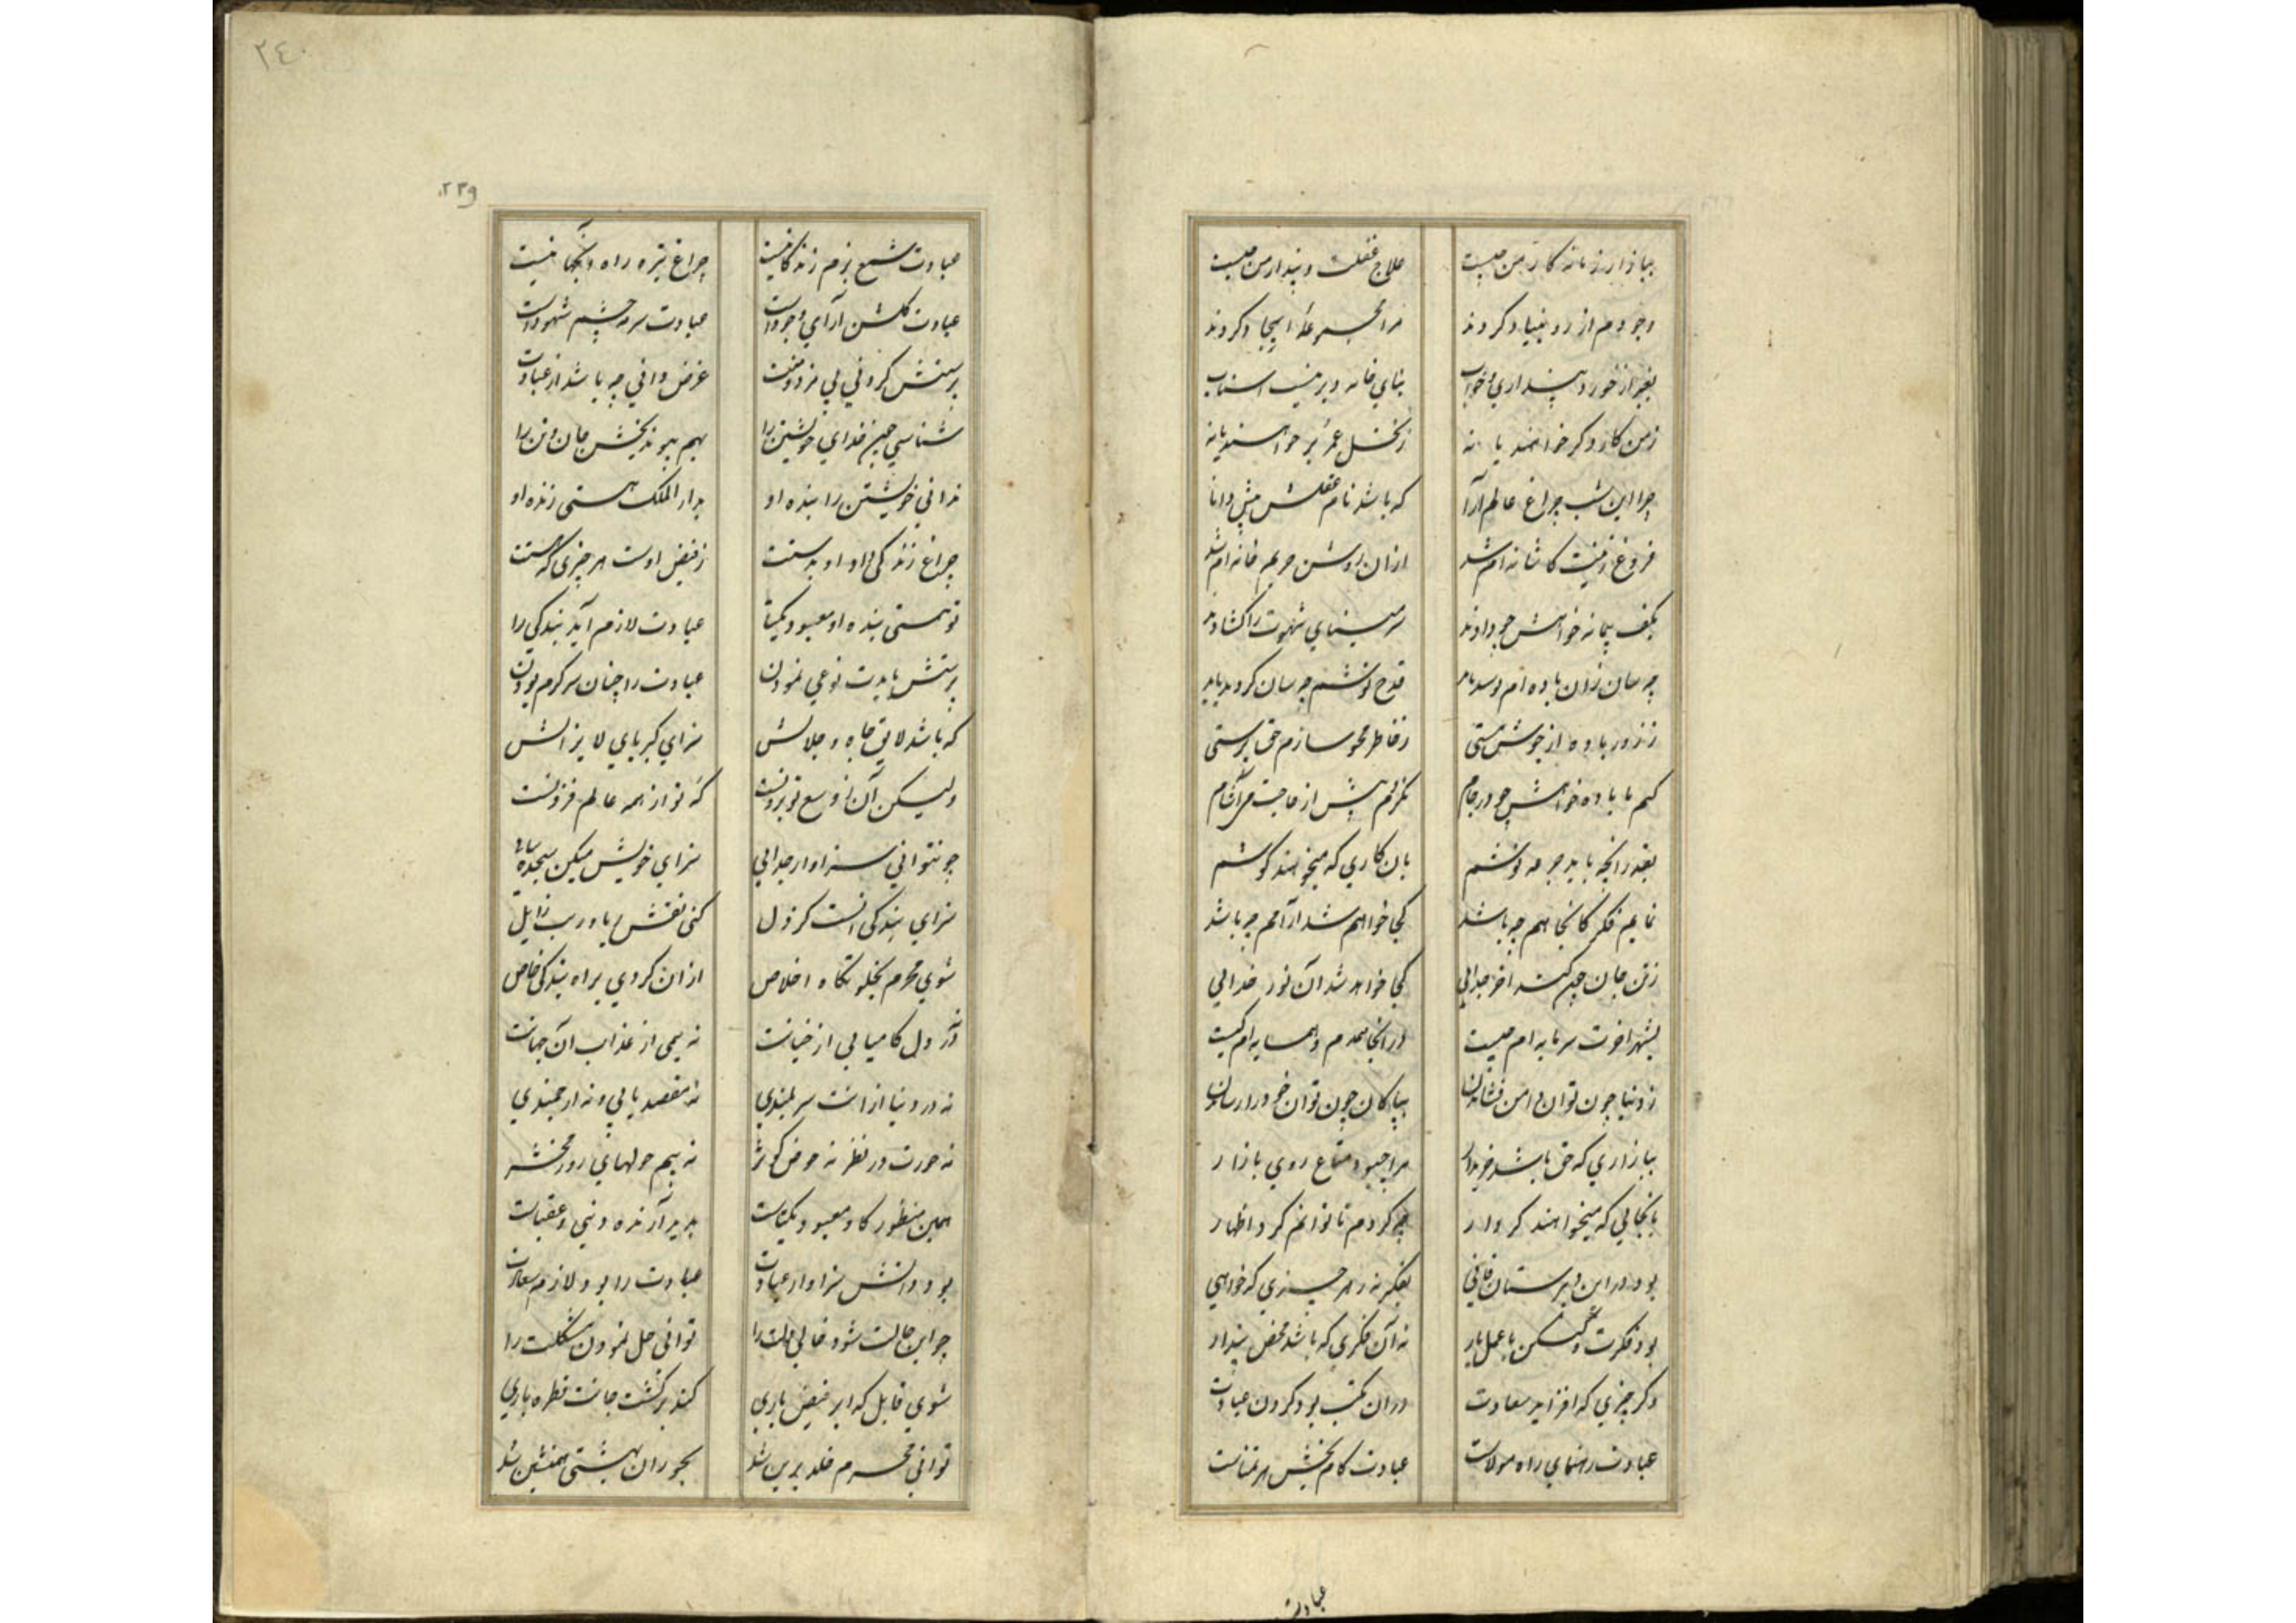 ببازار زمانه کار من چیست
علاج غفلت و پندار من چیست
وجودم از ره بنیاد کردند
مرا مجموعهٔ ایجاد کردند
بغیر از خورد و پنداری و خواب
بنای خانه و
ز من کار دکر خواهند یا نه
ز نخل عمر بر خواهند یا نه
چرا این شب چراغ عالم آرا
که باشد نام عقلش پیش دانا
فروغ زینت کاشانه ام شد
ازان روشن حریم خانه ام شد
بکف پیمانه خواهش چو دادند
سر مینای شهوت را کشادند
چه سان زان باده ام
قدح نوشم چه سان کردید باید
ز زور باده از جوش مستی
ز خاطر محو سازم حق پرستی
کنم تا باده خواهش چو در جام
نکردم بیش از حاجت می آشام
بقدر آنچه باید جرعه نوشم
بان کاری که میخواهند کوشم
نمایم فکر کانجا هم چه باشد
کجا خواهم شد آرامم چه باشد
ز تن جان چون کند آخر جدایی
کجا خواهد شد آن نور خدایی
بشهر آخرت سرمایه ام چیست
در انجا همدم و همسایه ام کیست
ز دنیا چون توان دامن فشاندن
بپاکان چون توان خود را رساندن
ببازاری که حق باشد خریدار
مرا چبود متاع روی بازار
بانجایی که میخواهند کردار
چه کردم تا توانم کرد اظهار
بود در این دبیرستان فانی
بفکرند هر چیزی که خواهی
بود فکرت ولیکن با عمل یار
نه آن فکری که باشد محض پندار
دکر چیزی که افزاید سعادت
دران مکتب بود کردن عبادت
عبادت رهنمای راه مولاست
عبادت کام بخش هر تمناست
عبادت
۲۴۰
۲۳۹
عبادت شمع بزم زندکانیست
چراغ تیره راه آنجهانیست
عبادت کلشن آرای وجودست
عبادت سرمه چشم شهودست
پرستش کردنی بی مزد و منت
غرض دانی چه باشد از عبادت
شناسی چون خدای خویشتن را
بهم پیوند بخش جان و تن را
بدانی خویشتن را بنده او
بدار الملک هستی زنده او
چراغ زندکی را داد او بدستت
ز فیض اوست هر چیزی که هستت
تو هستی بنده او معبود یکتا
عبادت لازم آید بندکی را
پرستش بایدت نوعی نمودن
عبادت را چنان سرکرم بودن
که باشد لایق جاه و جلالش
سزای کبریای لا یزالش
ولیکن آن ز وسع تو برونست
که تو از همه عالم فزونست
چو نتوانی سزاوار جدایی
سزای خویش میکن سجده سایی
سزای بندکی آنست کز دل
کنی نقش باور زایل
شوی محرم بخلوتکاه اخلاص
ازان کردی براه بندکی خاص
در دل کامیابی از خیانت
نه بیمی از عذاب آن جهانت
نه در دنیا ازانت سربلندی
نه مقصد یابی و نه ارجمندی
نه حورت در نظر نه حوض کوثر
نه بیم هولهای روز محشر
همین منظور کاو معبود یکتاست
پدید آرنده دنیی و عقباست
بود دانش سزاوار عبادت
عبادت را بود لازم سعادت
چو این حالت شود خالی دلت را
توانی حل نمودن مشکلت را
شوی قابل که ابر فیض باری
کند بر کشت جانت قطره باری
توانی محرم خلد برین شد
بحوران بهشتی همنشین شد